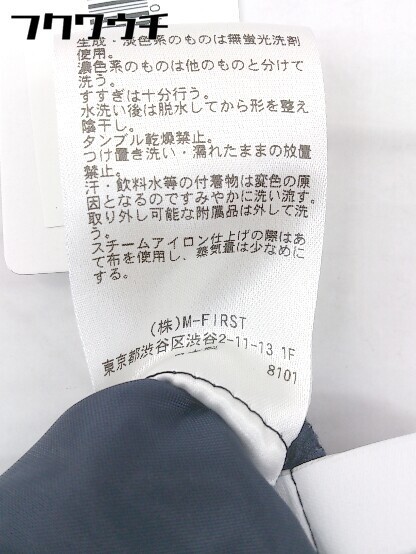 フクウウチ
生成・淡色系のものは無蛍光洗剤
使用。
濃色系のものは他のものと分けて
洗う。
すすぎは十分行う。
水洗い後は脱水してから形を整え
陰干し。
タンブル乾燥禁止。
つけ置き洗い・濡れたままの放置
禁止。
汗・飲料水等の付着物は変色の原
因となるのですみやかに洗い流す。
取り外し可能な附属品は外して洗
う。
スチームアイロン仕上げの際はあ
て布を使用し、蒸気量は少なめに
する。
(株)M-FIRST
東京都渋谷区渋谷2-11-13 1F
8101